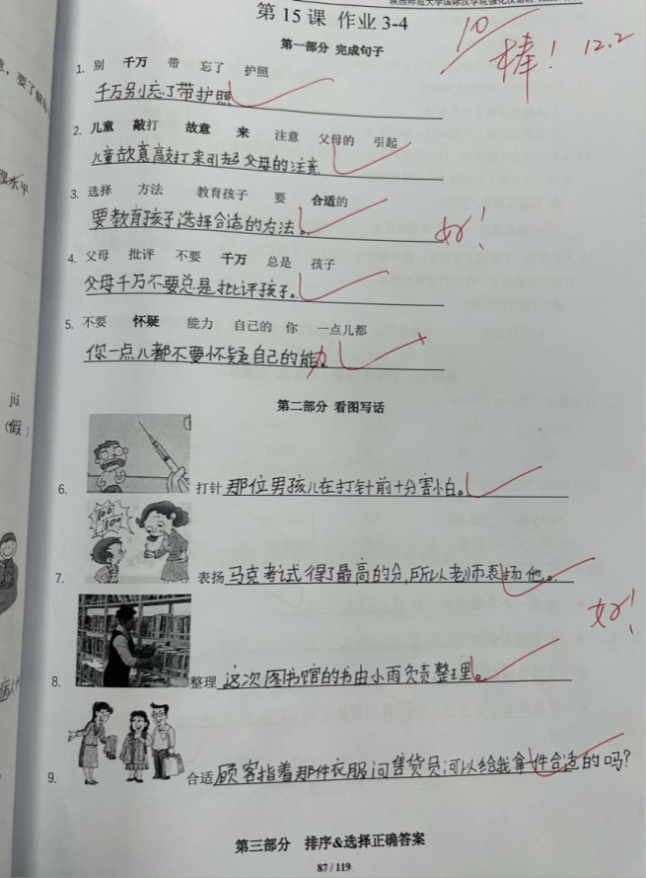 陕西师范大学国际汉学院强化汉语班
第 15 课 作业 3-4
10
棒! 12.2
第一部分 完成句子
1. 别 千万 带 忘了 护照
千万别忘了带护照
2. 儿童 敲打 故意 来 注意 父母的 引起
儿童故意敲打来引起父母的注意
3. 选择 方法 教育孩子 要 合适的
要教育孩子选择合适的方法。
好!
4. 父母 批评 不要 千万 总是 孩子
父母千万不要总是批评孩子。
5. 不要 怀疑 能力 自己的 你 一点儿都
你一点儿都不要怀疑自己的能力
第二部分 看图写话
6. 打针 那位男孩儿在打针前十分害怕。
7. 表扬 马克考试得了最高的分,所以老师表扬他。
好!
8. 整理 这次图书馆的书由小雨负责整理。
9. 合适 顾客指着那件衣服问售货员:可以给我拿一件合适的吗?
第三部分 排序&选择正确答案
87 / 119
jiǎ
(假)
理水平